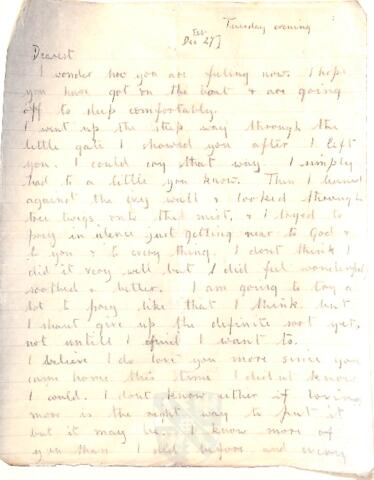 Tuesday evening
Dec 27]
Dearest
I wonder how you are feeling now. I hope
you have got on the boat & are going
off to sleep comfortably.
I went up the steep way through the
little gate I showed you after I left
you. I could cry that way. I simply
had to a little you know. Then I leaned
against the ivy wall & looked through
tree twigs onto the mist, & I tryed to
pray in silence just getting near to God &
to you & to every thing. I dont think I
did it very well but I did feel wonderfully
soothed & better. I am going to try a
lot to pray like that I think but
I shant give up the definite sort yet,
not untill I find I want to.
I believe I do love you more since you
came home this time I did not know
I could. I dont know either if loving
more is the right way to put it
but it may be. I know more of
you than I did before and every